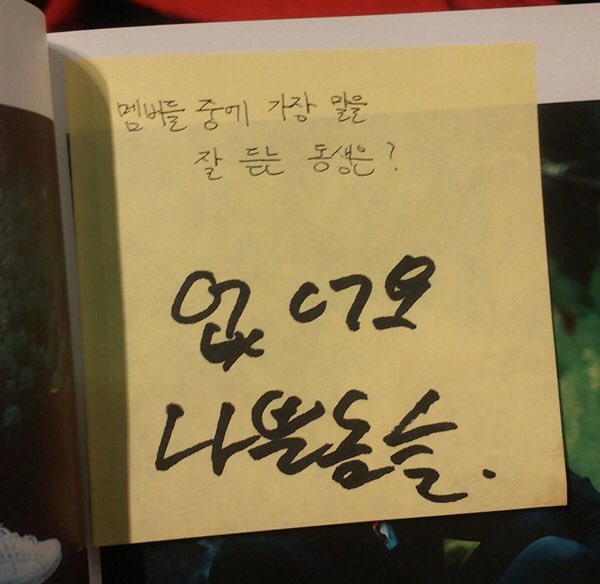 멤버들 중에 가장 말을
잘 듣는 동생은?
없어요
나쁜놈들.